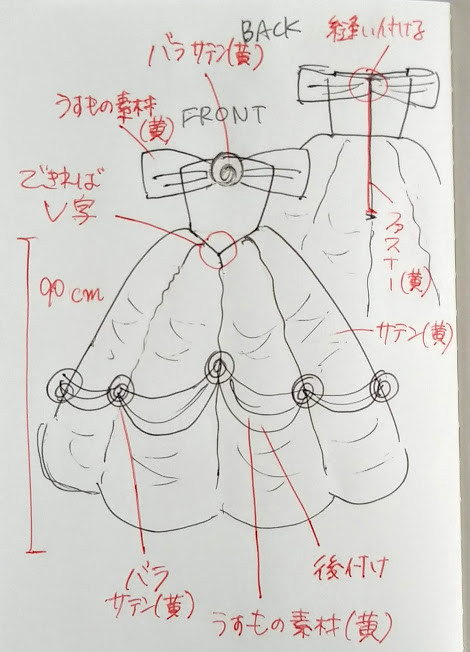 BACK
縫い付ける
バラ サテン(黄)
うすもの素材
(黄)
FRONT
できれば
V字
90cm
ファスナー(黄)
サテン(黄)
バラ
サテン(黄)
後付け
うすもの素材(黄)